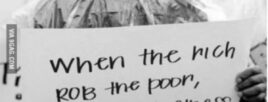 VIA 9GAG.COM
When the rich
ROB the poor,